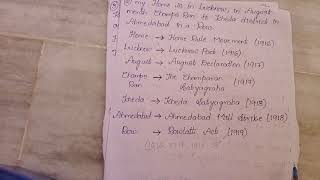 my Home is in Lucknow, in August
month Champa Ran to Kheda district in
Ahmedabad in a Row.
Home → Home Rule Movement (1916)
Lucknow → Lucknow Pact (1916)
August → August Declaration (1917)
Champa Ran → The Champaran Satyagraha (1917)
Kheda → Kheda Satyagraha (1918)
Ahmedabad → Ahmedabad Mill Strike (1918)
Row → Rowlatt Act (1919)